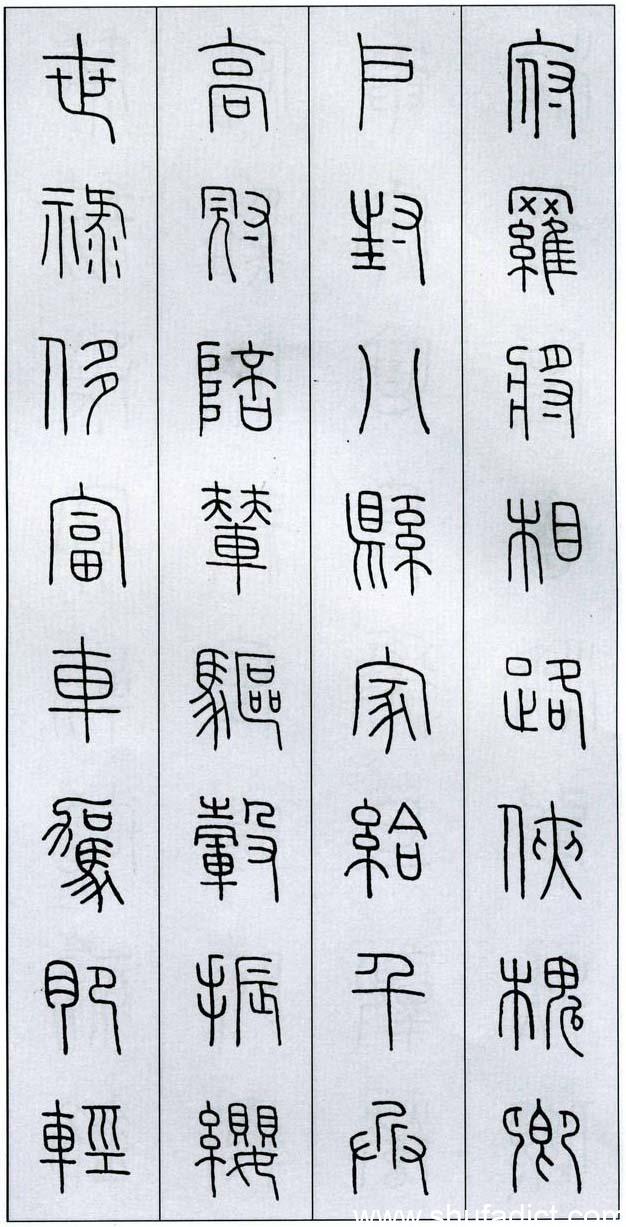 府羅將相路俠槐卿
戶封八縣家給千兵
高冠陪輦驅轂振纓
世祿侈富車駕肥輕
www.shufadict.com